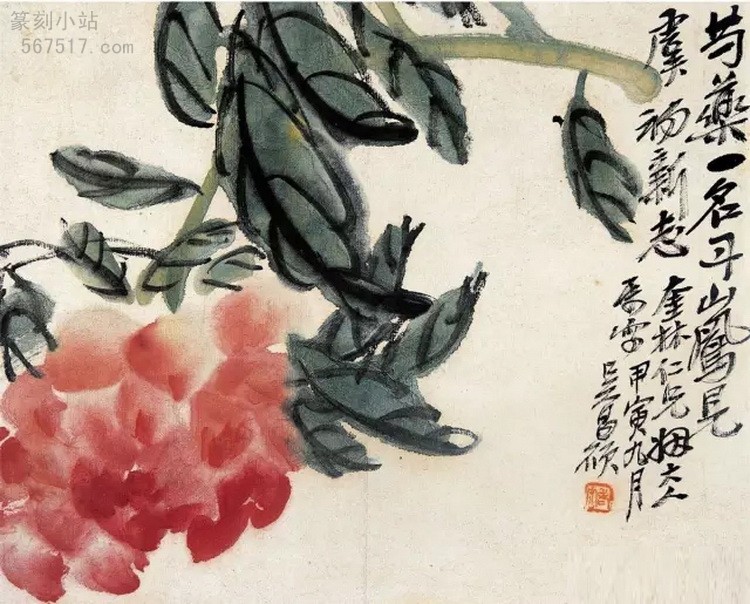 篆刻小站
567517.com
芍藥一名丹山鳳見
虞初新志
奎林仁兄
属字甲寅九月
吳昌碩